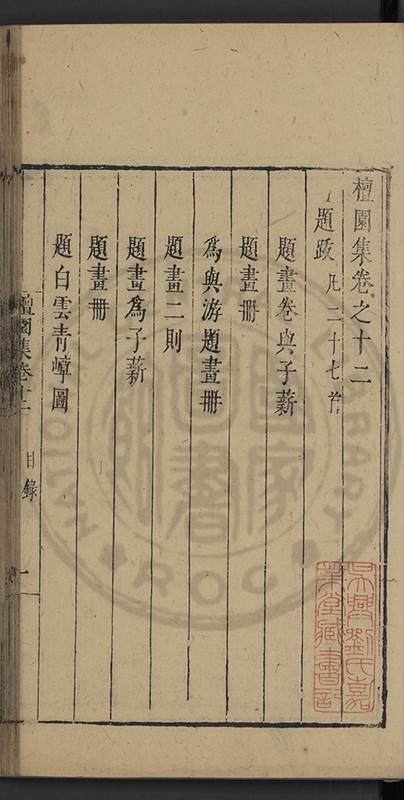 檀園集卷之十二
題跋 凡三十七首
題畫卷與子薪
題畫冊
為與游題畫冊
題畫二則
題畫為子薪
題畫冊
題白雲青嶂圖
檀園集卷十二 目錄 一
吳興劉氏嘉
業堂藏書記
國家圖書